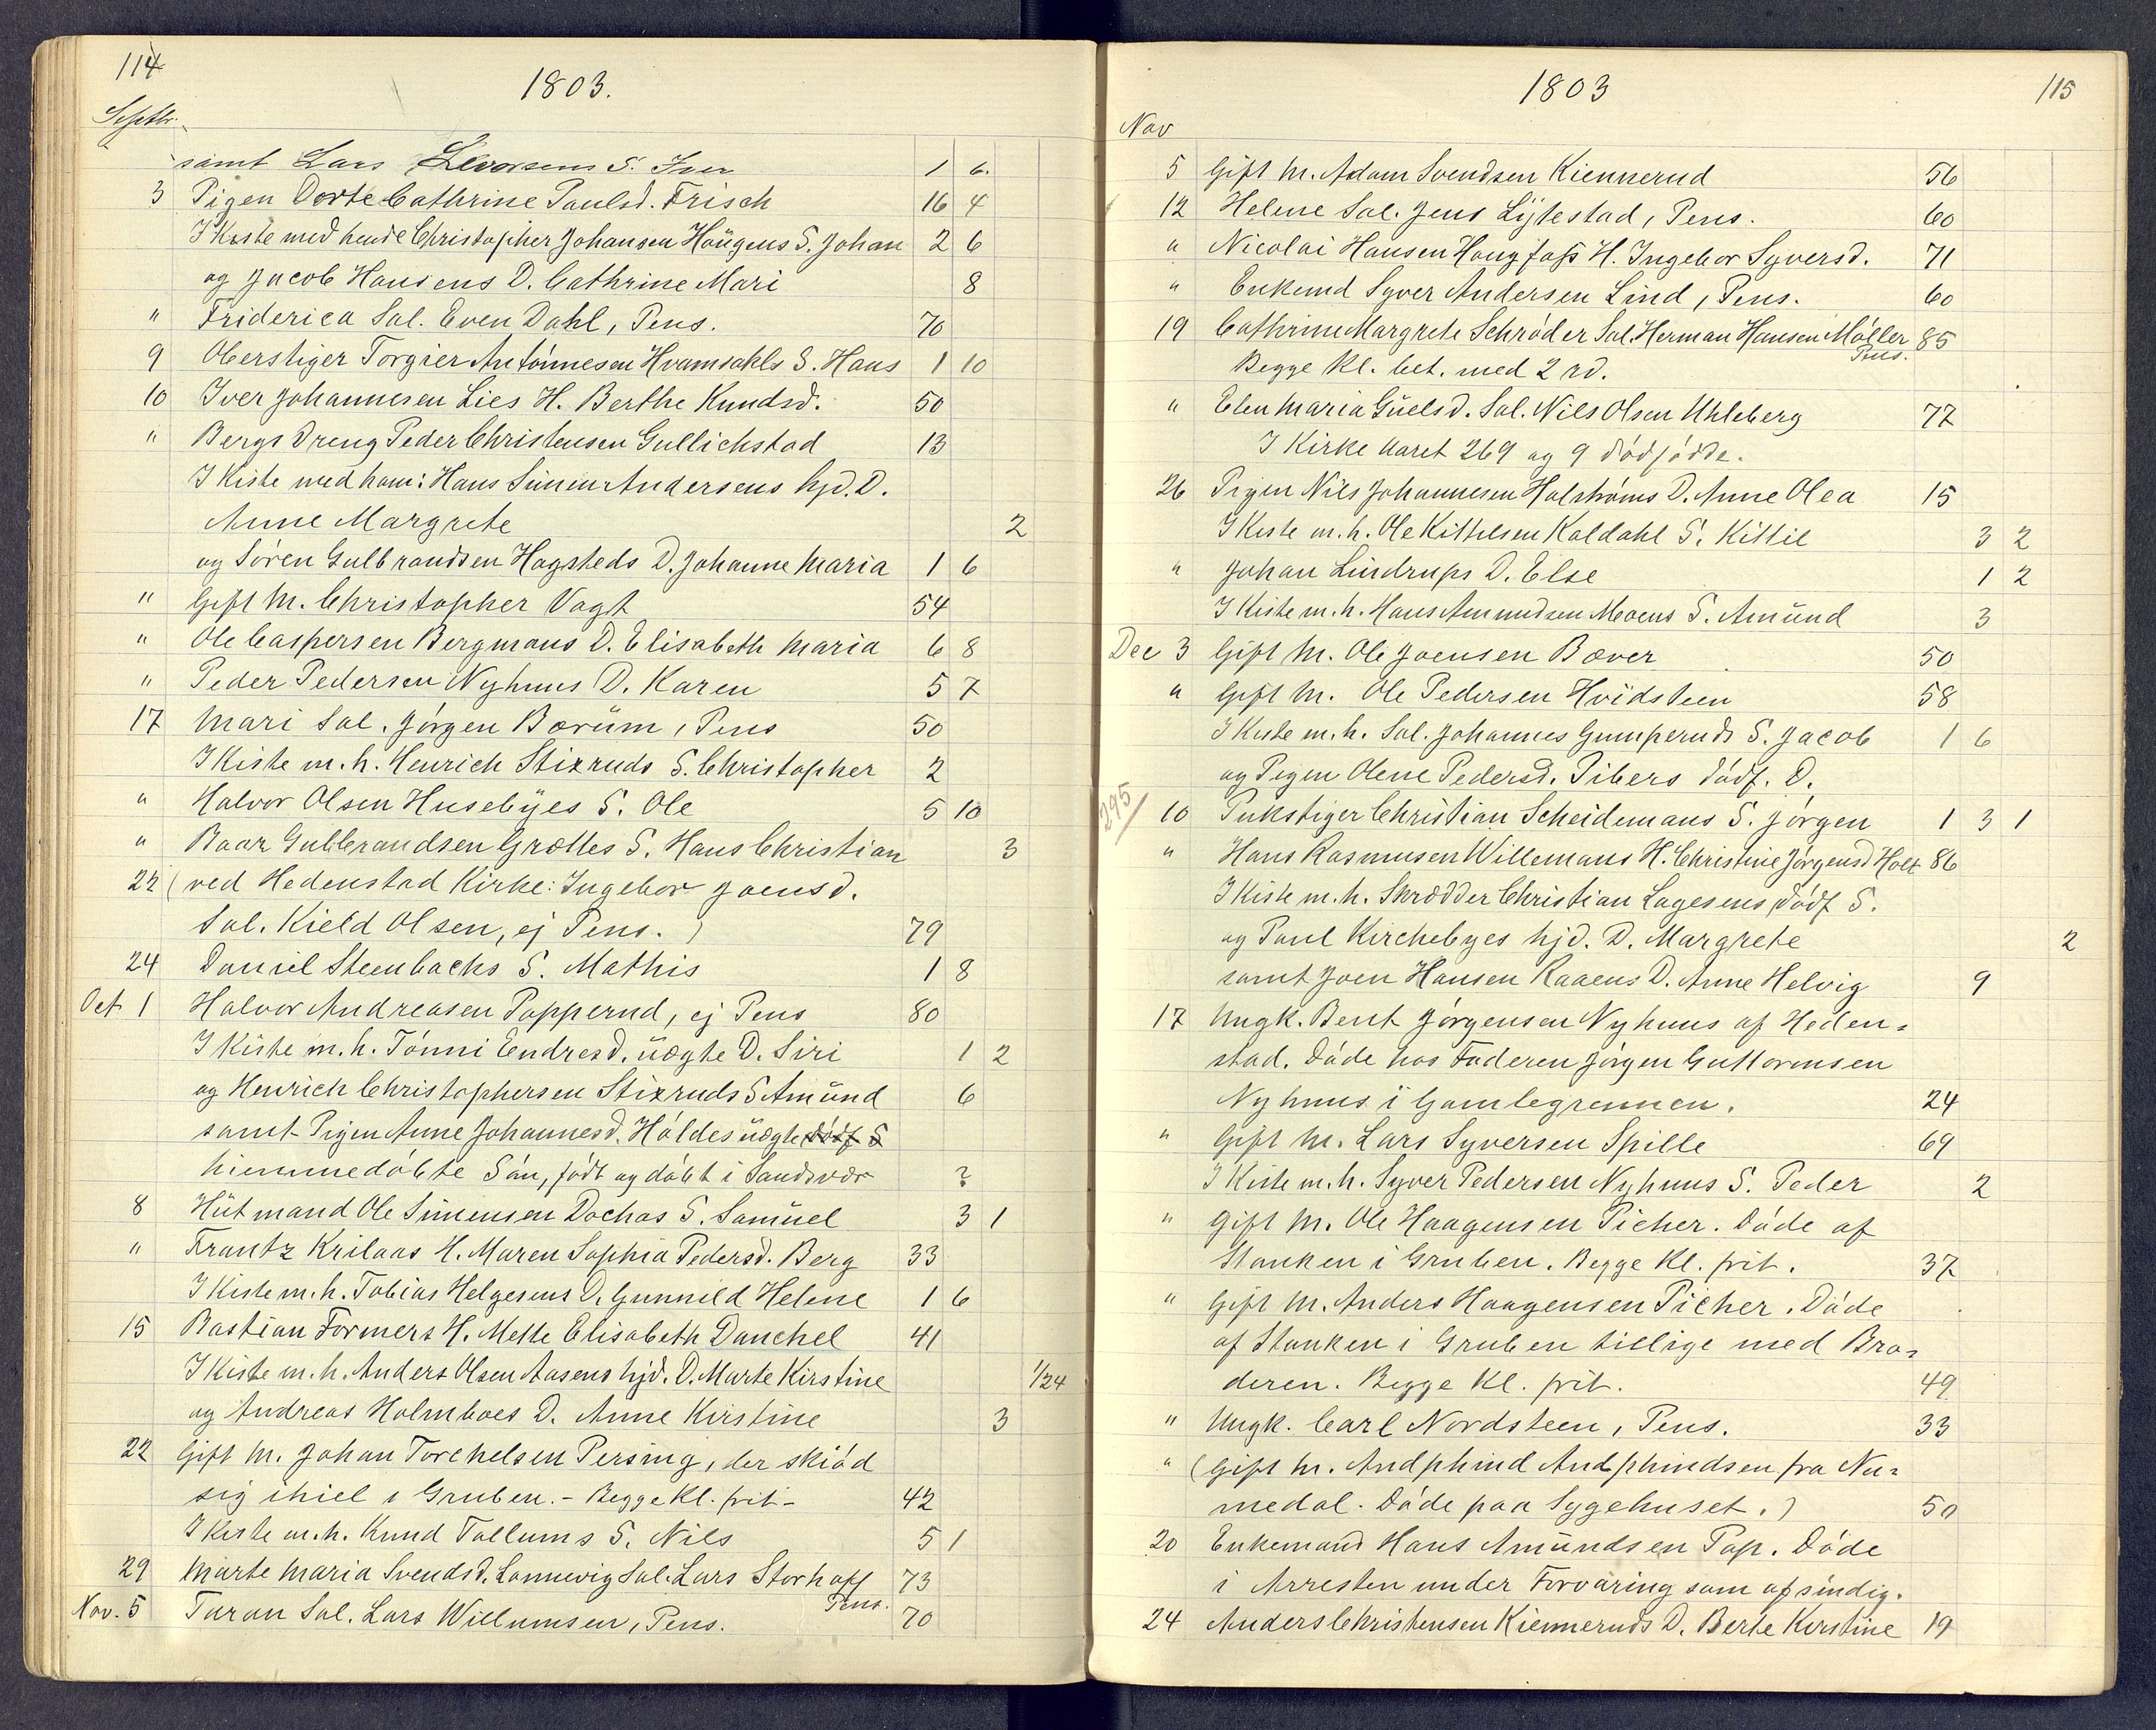 114
1803.
Septbr.
samt Lars Levorsens S. Iver 1 6.
3 Pigen Dorte Cathrine Paulsd. Frisch 16 4
I Kiste med hende Christopher Johansen Haügens S. Johan 2 6
og Jacob Hansens D. Cathrine Mari 8
" Friderica Sal. Even Dahl, Pens. 70
9 Oberstiger Torgier Antönnesen Hvamsahls S. Hans 1 10
10 Iver Johannesen Lies H. Berthe Knudsd. 50
" Bergs Dreng Peder Christensen Gullichstad 13
I Kiste med ham: Hans Simen Andersens hjd. D.
Anne Margrete 2
og Sören Gulbrandsen Hagsteds D. Johanne Maria 1 6
" Gift M. Christopher Vagt 54
" Ole Caspersen Bergmans D. Elisabeth Maria 6 8
" Peder Pedersen Nyhuus D. Karen 5 7
17 Mari Sal. Jörgen Bærüm, Pens 50
I Kiste m. h. Henrich Stixruds S. Christopher 2
" Halvor Olsen Husebÿes S. Ole 5 10
" Baar Gulbrandsen Grættes S. Hans Christian 3
22 (ved Hedenstad Kirke: Ingebor Joensd.
Sal. Kield Olsen, ej Pens.) 79
24 Daniel Steenbachs S. Mathis 1 8
Oct 1 Halvor Andreasen Poppernd, ej Pens 80
I Kiste m. h. Tönni Endresd. üægte D. Siri 1 2
og Henrich Christophersen Stixruds S Amünd 6
samt Pigen Anne Johannesd. Höldes üægte dödf S
hiemmedöbte Sön, födt og döbt i Sandsvær ?
8 Hütmand Ole Simensen Dochas S. Samüel 3 1
" Frantz Krilaas H. Maren Sophia Pedersd. Berg 33
I Kiste m. h. Tobias Helgesens D. Gunnild Helene 1 6
15 Bastian Formers H. Mette Elisabeth Danchel 41
I Kiste m. h. Anders Olsen Aasens hjd. D. Marte Kirstine 1/24
og Andreas Holmboes D. Anne Kirstine 3
22 Gift M. Johan Torchelsen Persing, der skiöd
sig ihiel i Gruben. - Begge Kl. frit - 42
I Kiste m. h. Knud Tollums S. Nils 5 1
29 Marte Maria Svendsd. Lonnevig Sal. Lars Storhoff 73
Pens.
Nov. 5 Taran Sal. Lars Willumsen, Pens. 70
1803
115
Nov
5 Gift M. Adam Svendsen Kiennerud 56
12 Helene Sal. Jens Lÿtestad, Pens. 60
" Nicolai Hansen Haugfoss H. Ingebor Syversd. 71
" Enkemd Syver Andersen Lind, Pens. 60
19 Cathrine Margrete Schröder Sal. Herman Hansen Möller 85
Pens.
Begge Kl. bet. med 2 rd.
" Elen Maria Güelsd. Sal. Nils Olsen Uhleberg 77
I Kirke Aaret 269 og 9 dödfödde.
26 Pigen Nils Johannesen Holströms D. Anne Olea 15
I Kiste m. h. Ole Kittilsen Koldahl S. Kittil 3 2
" Johan Lindrups D. Else 1 2
I Kiste m. h. Hans Amundsen Moens S. Amünd 3
Dec 3 Gift M. Ole Joensen Bæver 50
" Gift M. Ole Pedersen Hvidsteen 58
I Kiste m. h. Sal. Johannes Gumperuds S. Jacob 1 6
og Pigen Olene Pedersd. Pibers dödf. D.
295/
10 Pukstiger Christian Scheidemans S. Jörgen 1 3 1
" Hans Rasmusen Willemans H. Christine Jörgensd Holt 86
I Kiste m. h. Skrædder Christian Lagesens dödf S.
og Paul Kirchebyes hjd. D. Margrete 2
samt Joen Hansen Raaens D. Anne Helvig 9
17 Ungk. Bent Jörgensen Nyhuus af Heden-
stad. Döde hos Faderen Jörgen Guttormsen
Nyhuus i Gamlegrennen. 24
" Gift M. Lars Syversen Spille 69
I Kiste m. h. Syver Pedersen Nyhuus S. Peder 2
" Gift M. Ole Haagensen Picher. Döde af
Stanken i Gruben. Begge Kl. frit. 37
" Gift M. Anders Haagensen Picher. Döde
af Stanken i Gruben tillige med Bro-
deren. Begge Kl. frit. 49
" Ungk. Carl Nordsteen, Pens. 33
" (Gift M. Andphind Andphindsen fra Nu-
medal. Döde paa Sygehuset.) 50
20 Enkemand Hans Amündsen Pap. Döde
i Arresten under Forvaring som afsindig.
24 Anders Christensen Kienneruds D. Berte Kirstine 19